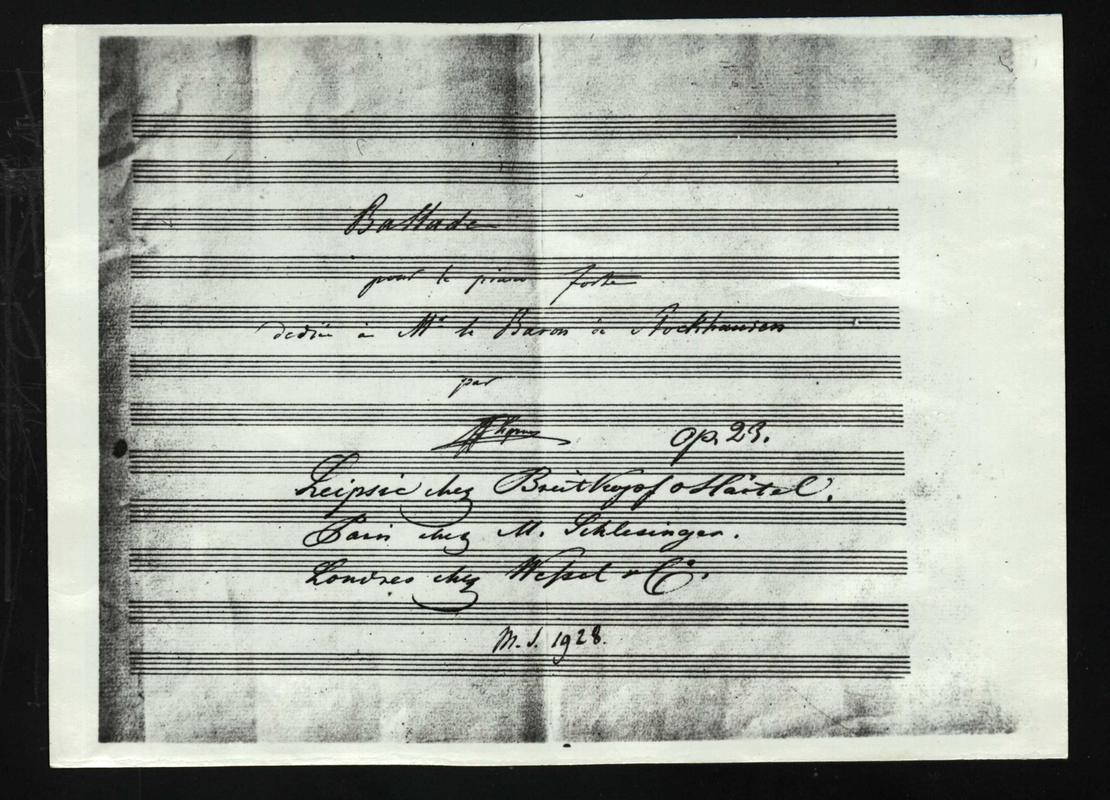 Ballade
pour le piano forte
dediée à Mr le Baron de Stockhausen
par
FChopin op. 23.
Leipsic chez Breitkopf & Härtel.
Paris chez M. Schlesinger.
Londres chez Wessel & Co.
M. S. 1928.